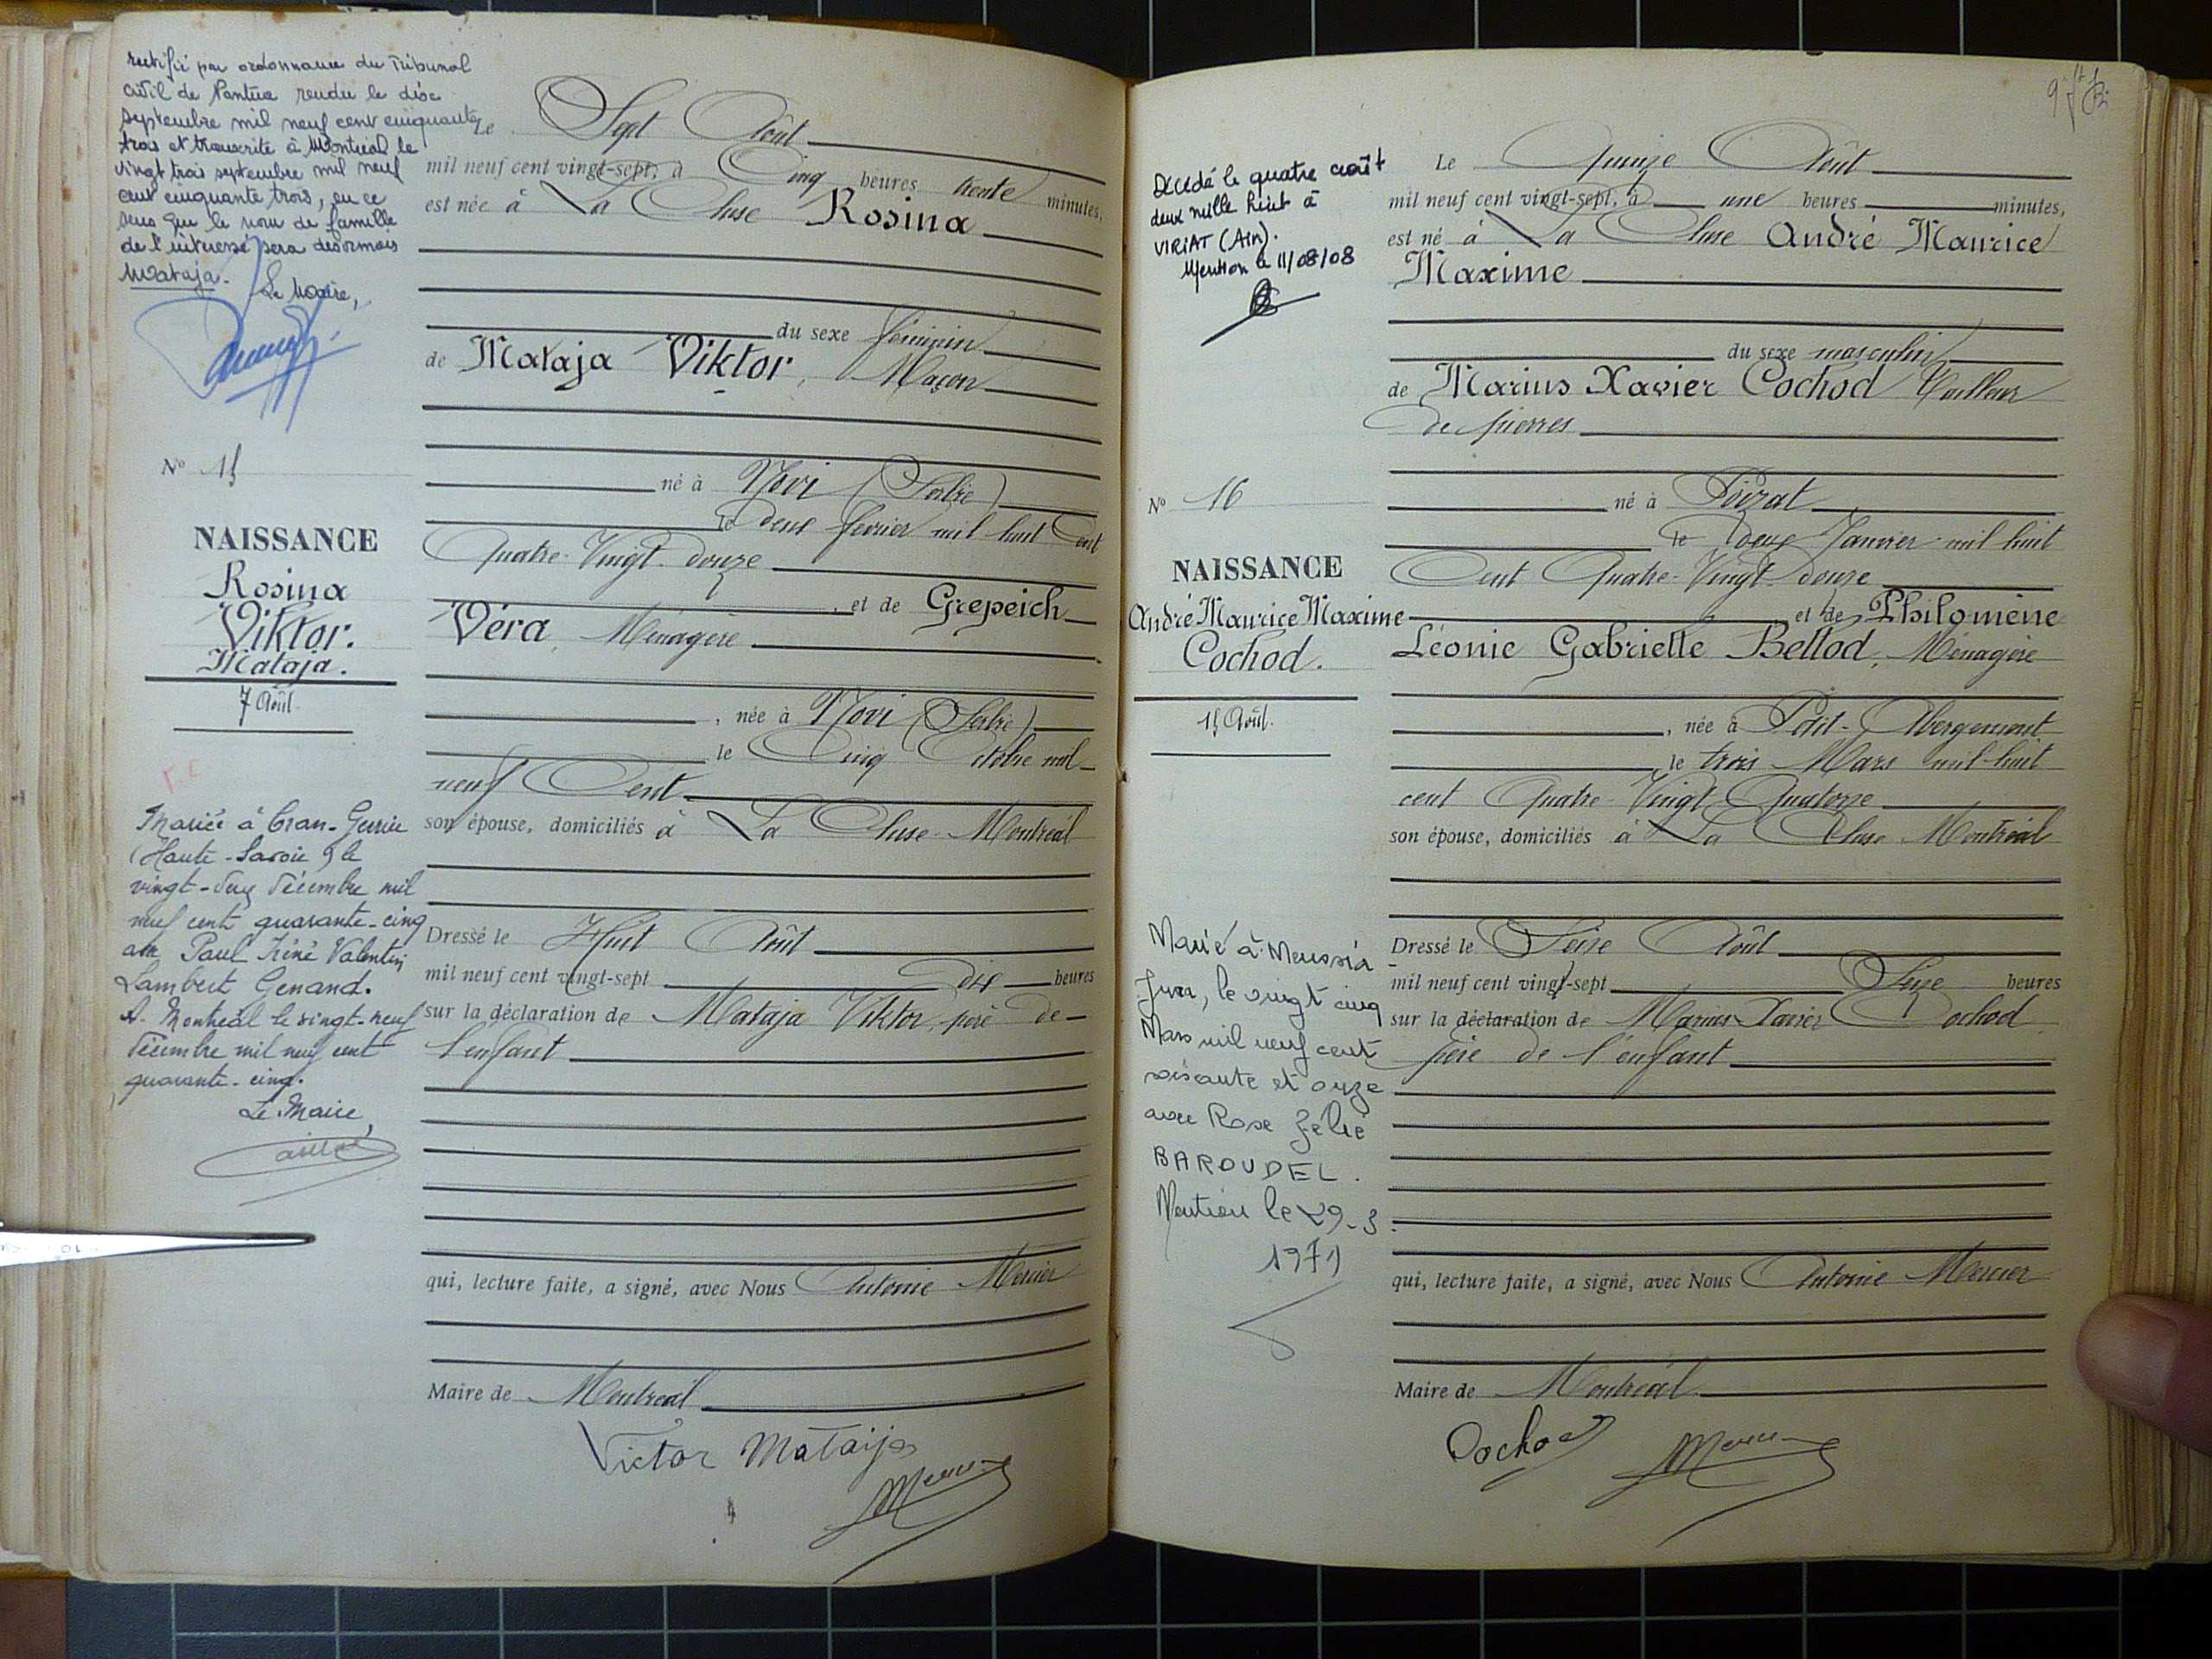 rectifié par ordonnance du Tribunal
civil de Nantua rendu le dix
septembre mil neuf cent cinquante
trois et transcrite à Montréal le
vingt trois septembre mil neuf
cent cinquante trois, en ce
sens que le nom de famille
de l'intéressé sera désormais
Mataja.
Le Maire,
N° 15
NAISSANCE
Rosina
Viktor.
Mataja.
7 Août.
Mariée à Cran-Gevrier
(Haute-Savoie) le
vingt-deux décembre mil
neuf cent quarante-cinq
avec Paul Réné Valentin
Lambert Genand.
A Montréal le vingt-neuf
décembre mil neuf cent
quarante-cinq.
Le Maire,
Le Sept Août
mil neuf cent vingt-sept, à Cinq heures trente minutes,
est née à La Cluse Rosina
du sexe féminin
de Mataja Viktor, Maçon
né à Novi (Serbie)
le deux février mil huit Cent
Quatre-Vingt-douze
, et de Grepeich
Véra, Ménagère
, née à Novi (Serbie)
le Cinq Octobre mil
neuf Cent
son épouse, domiciliés à La Cluse-Montréal
Dressé le Huit Août
mil neuf cent vingt-sept dix heures
sur la déclaration de Mataja Viktor, père de
l'enfant
qui, lecture faite, a signé, avec Nous Antonie Mercier
Maire de Montréal
Victor Mataija
Mercier
9
Décédé le quatre août
deux mille huit à
VIRIAT (Ain).
Mention le 11/08/08
N° 16
NAISSANCE
André Maurice Maxime
Cochod.
15 Août.
Marié à Meussia
Jura, le vingt cinq
Mars mil neuf cent
soixante et onze
avec Rose Zélie
BAROUDEL.
Mention le 29-3.
1971
Le Quinze Août
mil neuf cent vingt-sept, à une heures minutes,
est né à La Cluse André Maurice
Maxime
du sexe masculin
de Marius Xavier Cochod Tailleur
de pierres
né à Peizat
le deux Janvier mil huit
Cent Quatre-Vingt douze
et de Philomène
Léonie Gabrielle Bellod, Ménagère
, née à Petit-Abergement
le trois Mars mil-huit
cent Quatre-Vingt Quatorze
son épouse, domiciliés à La Cluse Montréal
Dressé le Seize Août
mil neuf cent vingt-sept Seize heures
sur la déclaration de Marius Xavier Cochod
père de l'enfant
qui, lecture faite, a signé, avec Nous Antonie Mercier
Maire de Montréal
Cochod
Mercier